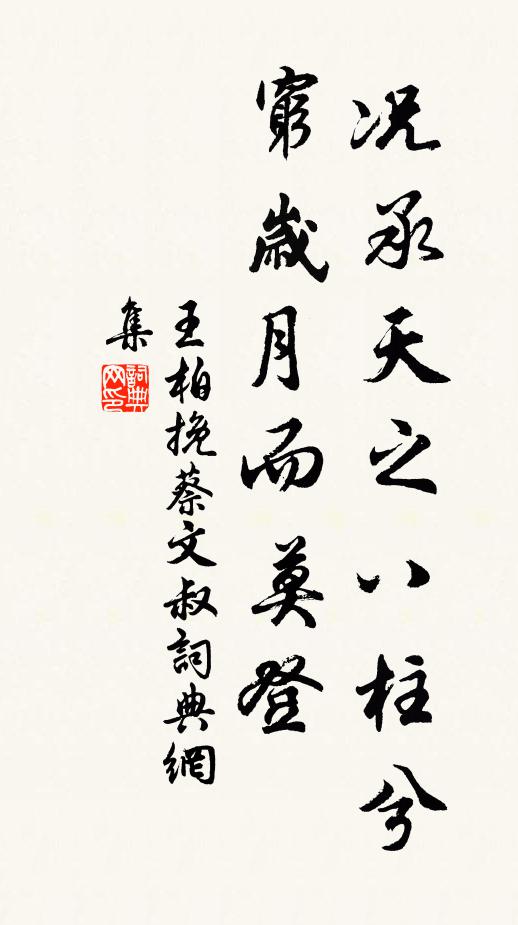 况承天之八柱兮
窮歲月而莫登
王柏挽蔡文叔詞典網
集
詞典
网印